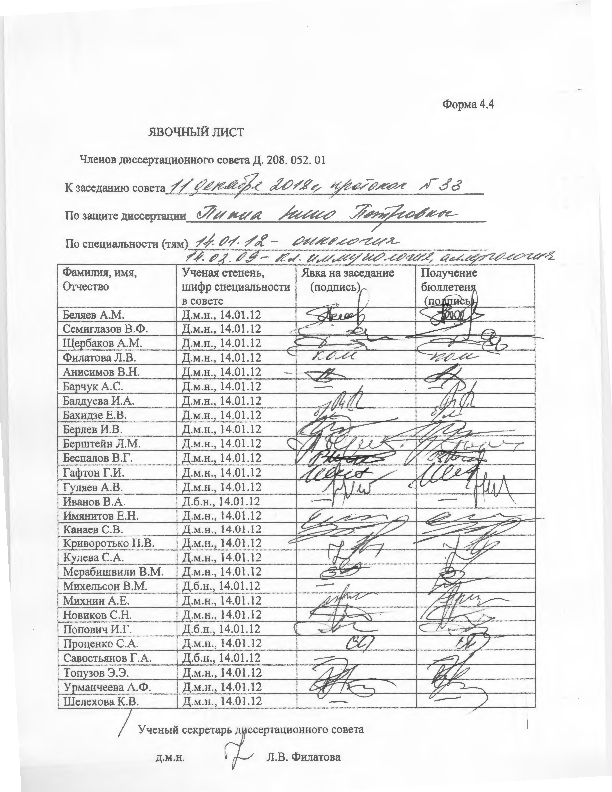 Форма 4.4
ЯВОЧНЫЙ ЛИСТ
Членов диссертационного совета Д. 208. 052. 01
К заседанию совета 11 декабря 2018 г, протокол № 33
По защите диссертации Пипиа Нино Петровны
По специальности (тям) 14.01.12 - онкология
14.03.09 - кл. иммунология, аллергология
Фамилия, имя, Отчество Ученая степень, шифр специальности в совете Явка на заседание (подпись) Получение бюллетеня (подпись)
Беляев А.М. Д.м.н., 14.01.12
Семиглазов В.Ф. Д.м.н., 14.01.12
Щербаков А.М. Д.м.н., 14.01.12
Филатова Л.В. Д.м.н., 14.01.12
Анисимов В.Н. Д.м.н., 14.01.12
Барчук А.С. Д.м.н., 14.01.12
Балдуева И.А. Д.м.н., 14.01.12
Бахидзе Е.В. Д.м.н., 14.01.12
Берлев И.В. Д.м.н., 14.01.12
Берштейн Л.М. Д.м.н., 14.01.12
Беспалов В.Г. Д.м.н., 14.01.12
Гафтон Г.И. Д.м.н., 14.01.12
Гуляев А.В. Д.м.н., 14.01.12
Иванов В.А. Д.б.н., 14.01.12
Имянитов Е.Н. Д.м.н., 14.01.12
Канаев С.В. Д.м.н., 14.01.12
Криворотько П.В. Д.м.н., 14.01.12
Кулева С.А. Д.м.н., 14.01.12
Мерабишвили В.М. Д.м.н., 14.01.12
Михельсон В.М. Д.б.н., 14.01.12
Михнин А.Е. Д.м.н., 14.01.12
Новиков С.Н. Д.м.н., 14.01.12
Попович И.Г. Д.б.н., 14.01.12
Проценко С.А. Д.м.н., 14.01.12
Савостьянов Г.А. Д.б.н., 14.01.12
Топузов Э.Э. Д.м.н., 14.01.12
Урманчеева А.Ф. Д.м.н., 14.01.12
Шелехова К.В. Д.м.н., 14.01.12
Ученый секретарь диссертационного совета
д.м.н. Л.В. Филатова